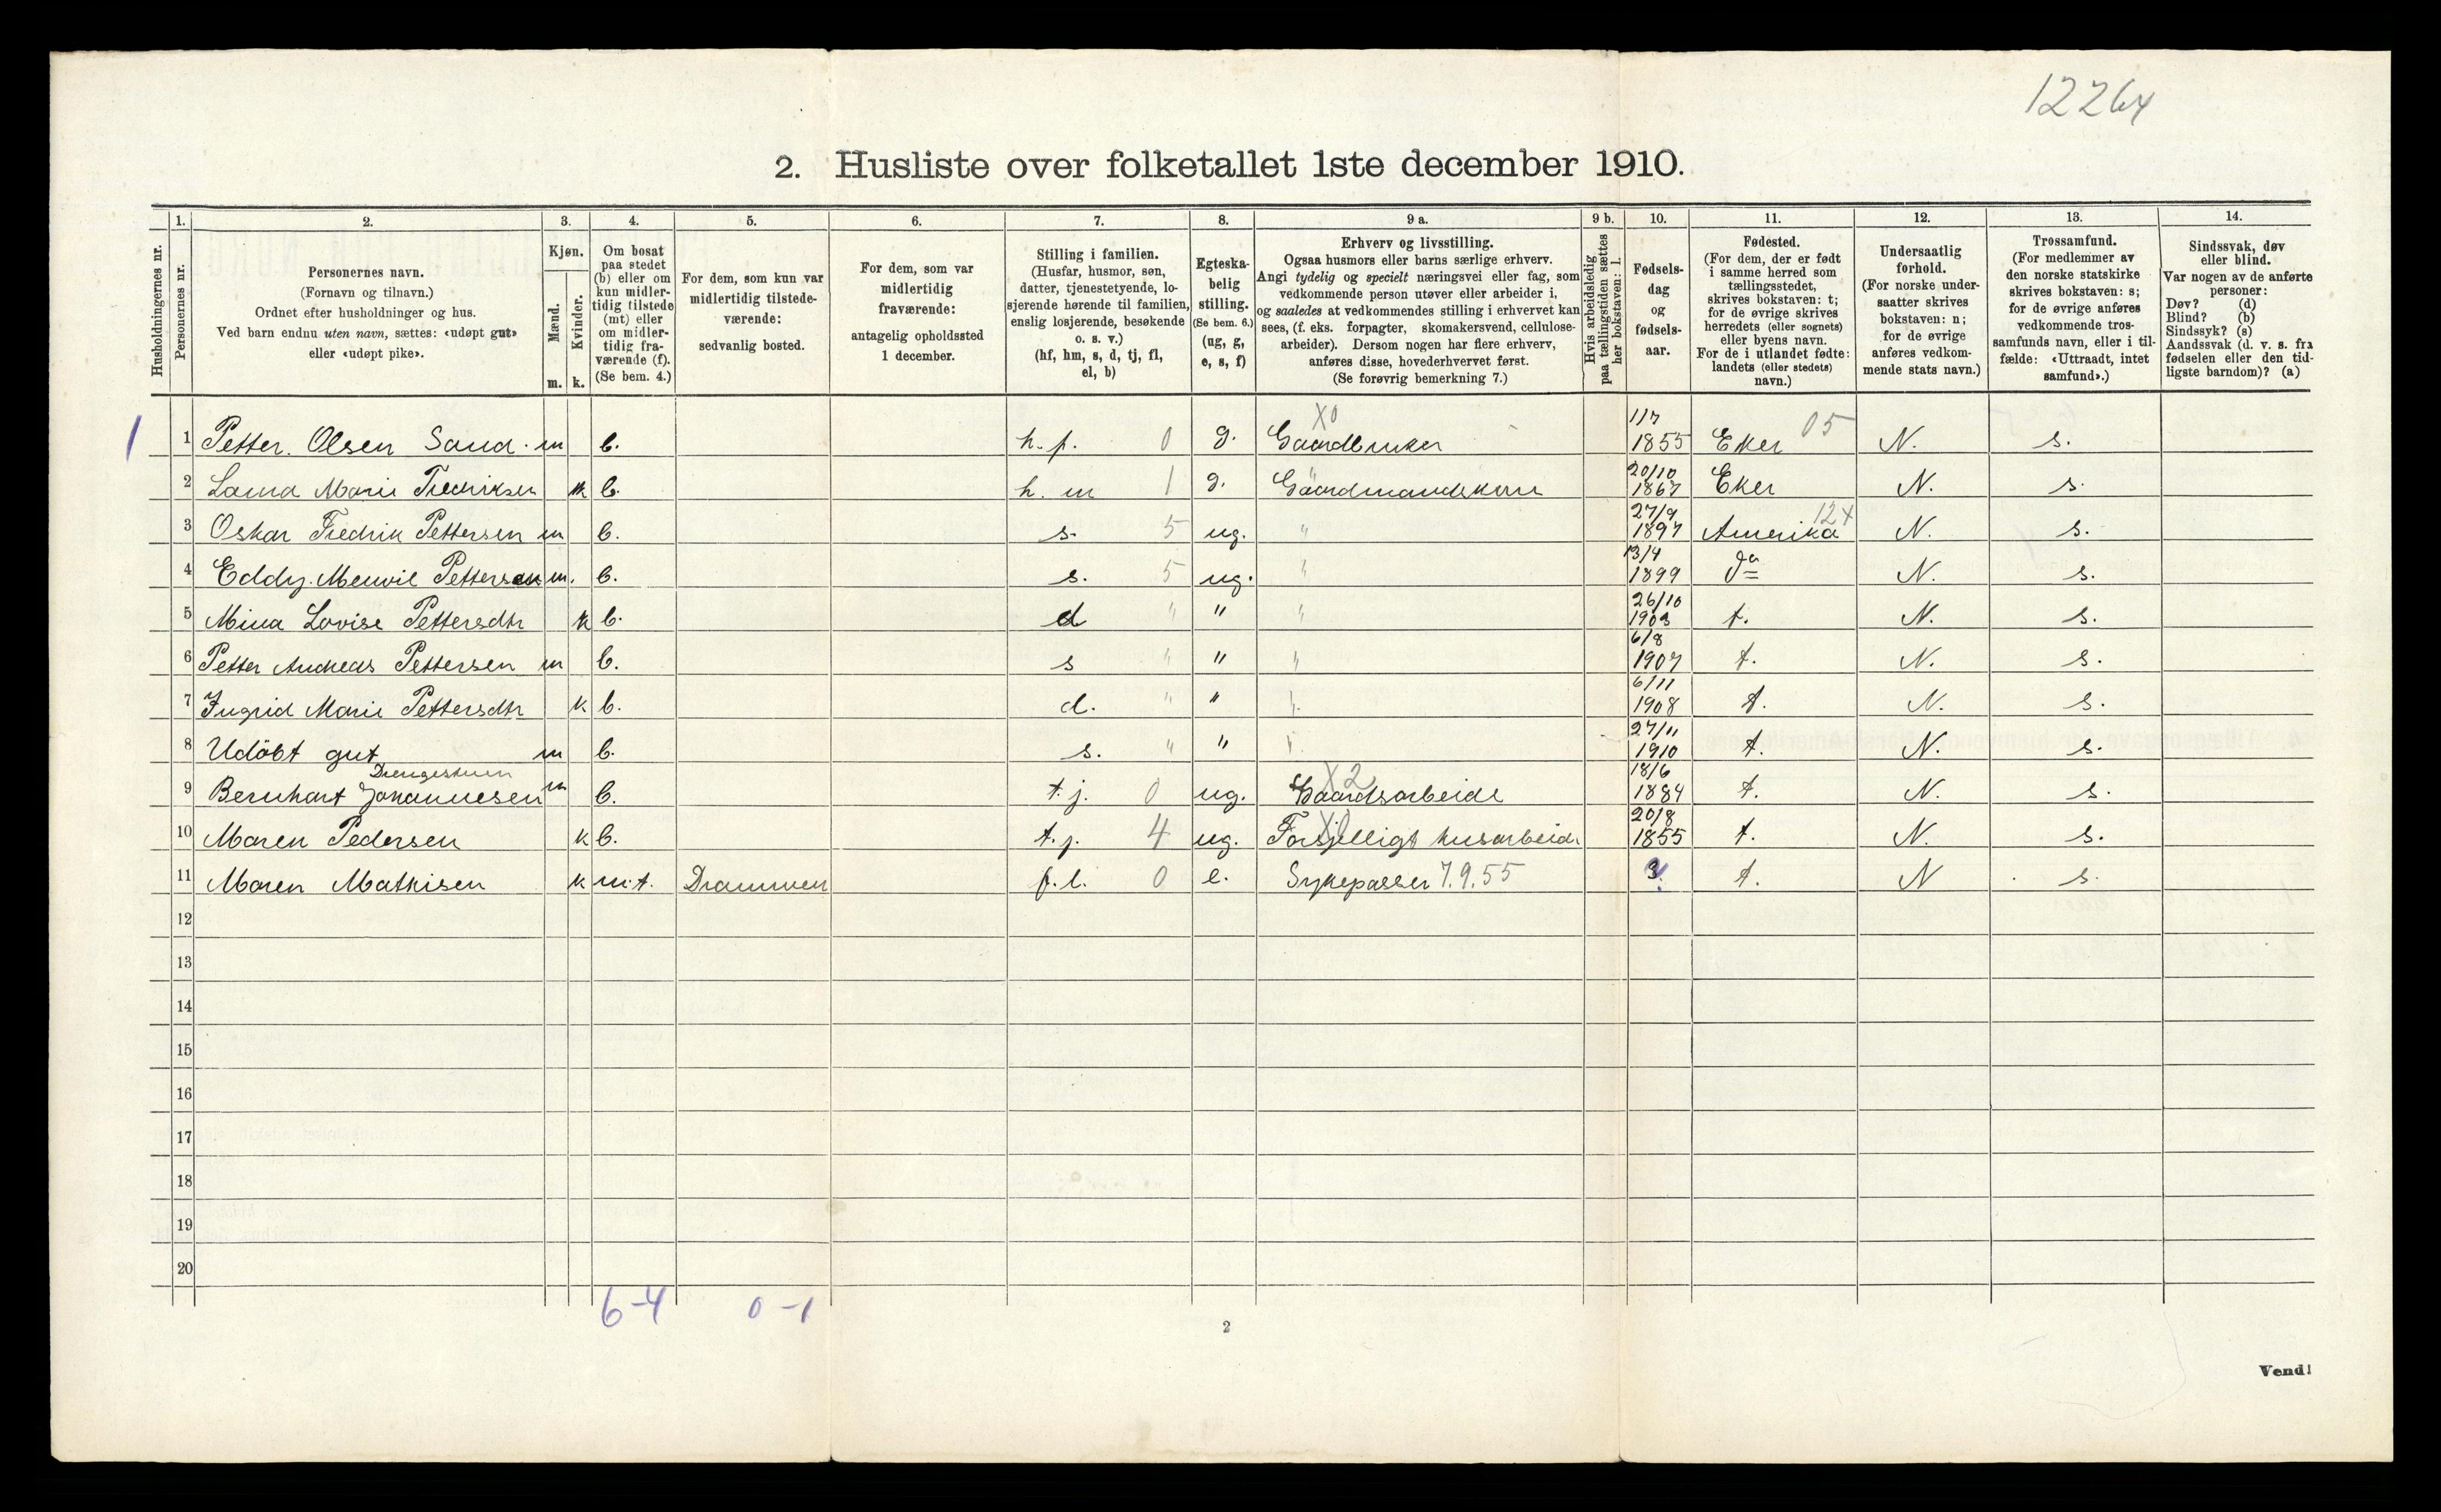 12264
2. Husliste over folketallet 1ste december 1910.
1. 2. 3. 4. 5. 6. 7. 8. 9 a. 9 b. 10. 11. 12. 13. 14.
Husholdningernes nr.
Personernes nr.
Personernes navn.
(Fornavn og tilnavn.)
Ordnet efter husholdninger og hus.
Ved barn endnu uten navn, sættes: «udøpt gut»
eller «udøpt pike».
Kjøn.
Mænd.
Kvinder.
m. k.
Om bosat
paa stedet
(b) eller om
kun midler-
tidig tilstede
(mt) eller
om midler-
tidig fra-
værende (f).
(Se bem. 4.)
For dem, som kun var
midlertidig tilstede-
værende:
sedvanlig bosted.
For dem, som var
midlertidig
fraværende:
antagelig opholdssted
1 december.
Stilling i familien.
(Husfar, husmor, søn,
datter, tjenestetyende, lo-
sjerende hørende til familien,
enslig losjerende, besøkende
o. s. v.)
(hf, hm, s, d, tj, fl,
el, b)
Egteska-
belig
stilling.
(Se bem. 6.)
(ug, g,
e, s, f)
Erhverv og livsstilling.
Ogsaa husmors eller barns særlige erhverv.
Angi tydelig og specielt næringsvei eller fag, som
vedkommende person utøver eller arbeider i,
og saaledes at vedkommendes stilling i erhvervet kan
sees, (f. eks. forpagter, skomakersvend, cellulose-
arbeider). Dersom nogen har flere erhverv,
anføres disse, hovederhvervet først.
(Se forøvrig bemerkning 7.)
Hvis arbeidsledig
paa tællingstiden sættes
her bokstaven: l.
Fødsels-
dag
og
fødsels-
aar.
Fødested.
(For dem, der er født
i samme herred som
tællingsstedet,
skrives bokstaven: t;
for de øvrige skrives
herredets (eller sognets)
eller byens navn.
For de i utlandet fødte:
landets (eller stedets)
navn.)
Undersaatlig
forhold.
(For norske under-
saatter skrives
bokstaven: n;
for de øvrige
anføres vedkom-
mende stats navn.)
Trossamfund.
(For medlemmer av
den norske statskirke
skrives bokstaven: s;
for de øvrige anføres
vedkommende tros-
samfunds navn, eller i til-
fælde: «Uttraadt, intet
samfund».)
Sindssvak, døv
eller blind.
Var nogen av de anførte
personer:
Døv? (d)
Blind? (b)
Sindssyk? (s)
Aandssvak (d. v. s. fra
fødselen eller den tid-
ligste barndom)? (a)
1 1 Petter. Olsen Sand. m b. h. f. 0 g. X0 Gaardbruker 1/7 1855 Eker 05 N. s.
2 Laura Marie Fredriksen k b. h. m 1 g. Gaardmandskone 20/10 1867 Eker N. s.
3 Oskar Fredrik Pettersen m b. s. 5 ug. " 27/9 1897 Amerika 124 N. s.
4 Eddy. Menvil Pettersen m. b. s. 5 ug. " 13/4 1899 da N. s.
5 Mina Lovise Pettersdtr k b. d " " " 26/10 1903 t. N. s.
6 Petter Andreas Pettersen m b. s " " " 6/8 1907 t. N. s.
7 Ingrid Marie Pettersdtr k b. d. " " " 6/11 1908 t. N. s.
8 Udöbt gut m b. s. " " " 27/11 1910 t. N. s.
Drengestuen
9 Bernhart Johannesen m b. t. j. 0 ug. X2 Gaardsarbeide 18/6 1884 t. N. s.
10 Maren Pedersen k b. t. j. 4 ug. Forsjelligt husarbeide 20/8 1855 t. N. s.
11 Maren Mathisen k m.t. Drammen f. l. 0 e. Sykepasser 7.9.55 t. N s.
12
13
14
15
16
17
18
19
20
6-4 0-1
2
Vend!